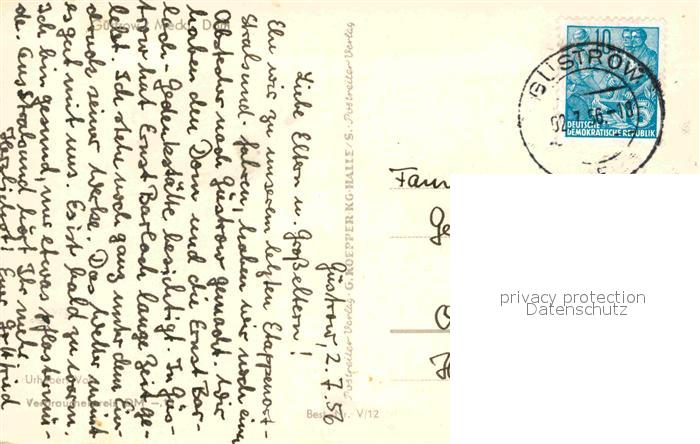 Güstrow, 2.7.56
Liebe Eltern u. Großeltern!
Ehe wir zu unserem letzten Etappenort -
Stralsund - fahren, haben wir noch einen
Abstecher nach Güstrow gemacht. Wir
haben den Dom und die Ernst Bar-
lach-Gedenkstätte besichtigt. In Güs-
trow hat Ernst Barlach lange Zeit ge-
lebt. Ich stehe noch ganz unter dem Ein-
druck seiner Werke. Das Wetter meint
es gut mit uns. Es ist bald zu warm.
Ich bin gesund, nur etwas pflastermü-
de. Aus Stralsund hört Ihr mehr.
Herzlichst! Euer Gottfried
Güstrow Meckl. Dom
Postreiter-Verlag G. KOEPPER-KG-HALLE-S. Postreiter-Verlag
Verbraucherpreis DM
Best.-Nr. V/12
10
DEUTSCHE
DEMOKRATISCHE REPUBLIK
GÜSTROW
Fam
privacy protection
Datenschutz